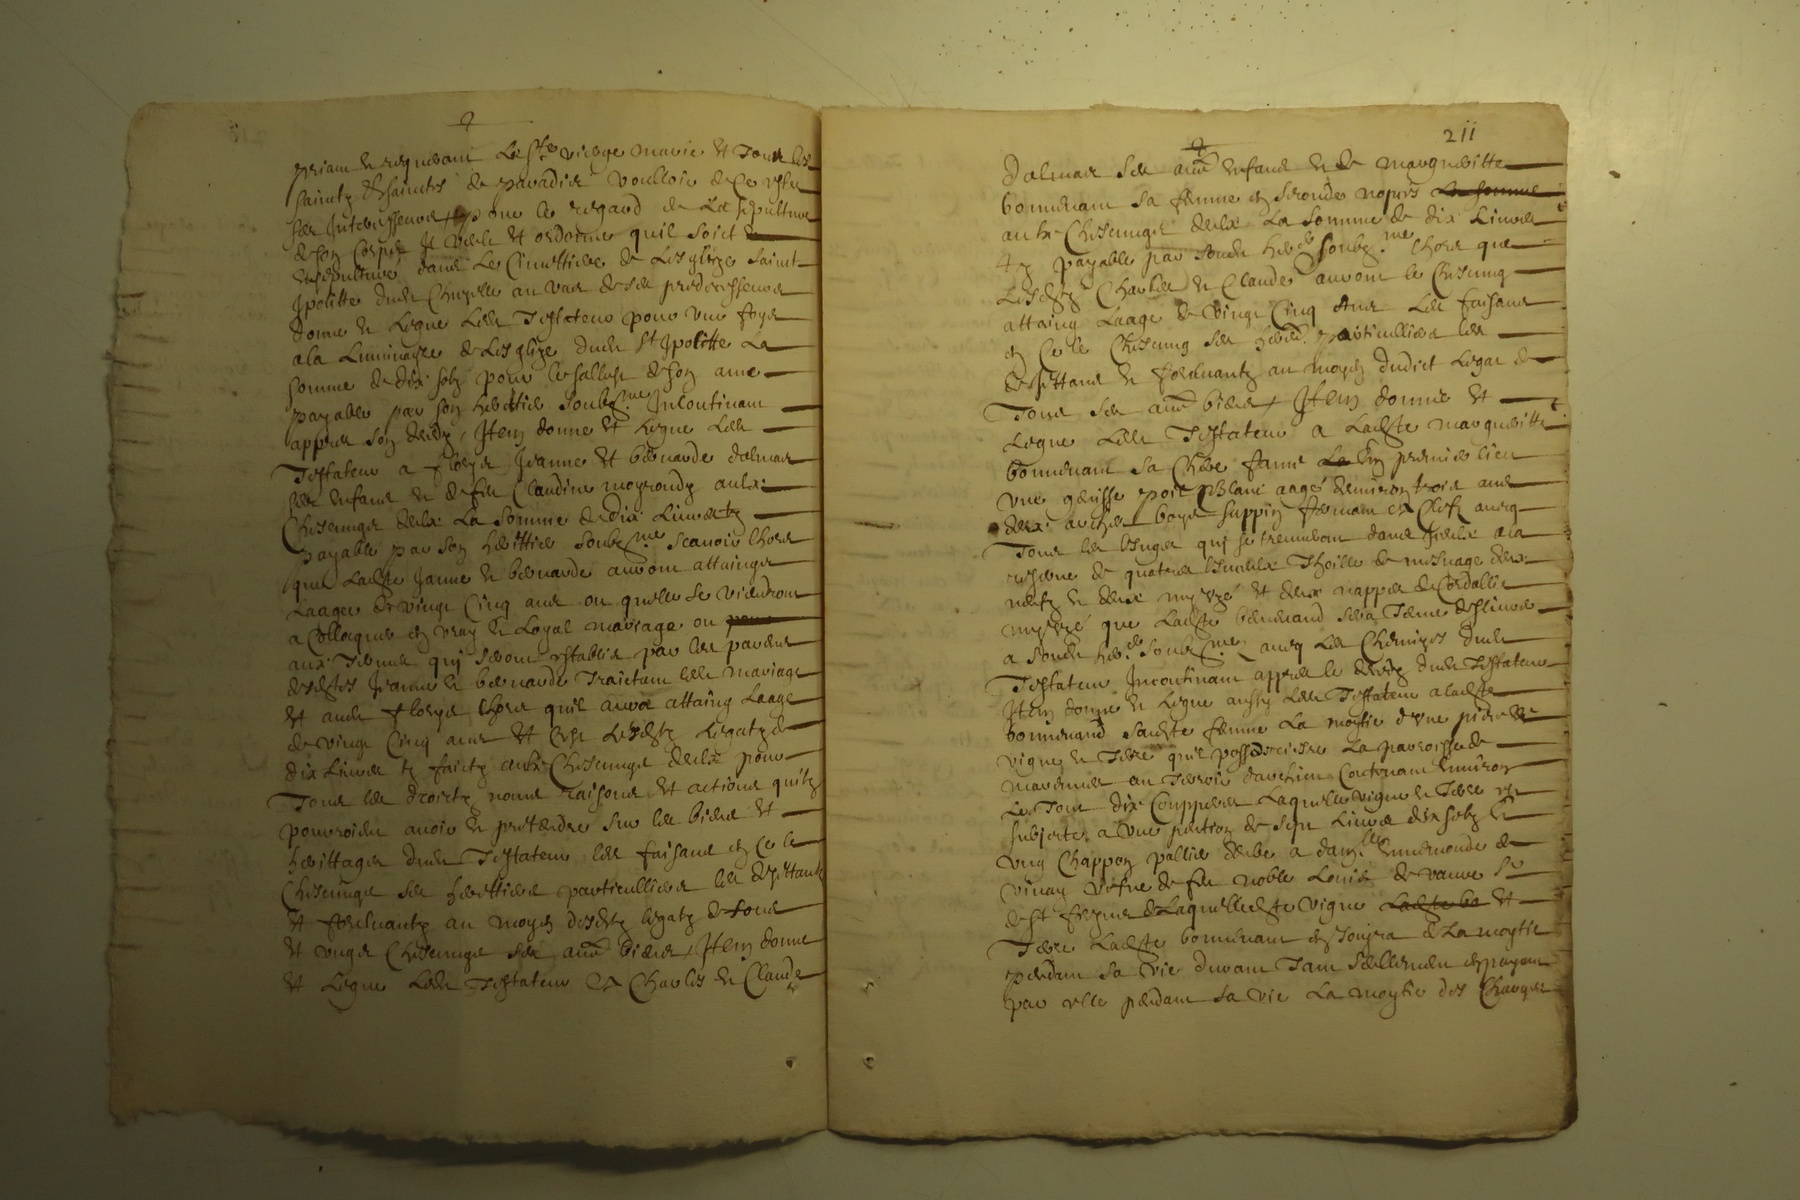 priant et requerant La Ste vierge marie et Tous les
sainctz et sainctes de paradis voulloir de ce estre
ses Intercesseurs Et pour le regard de La sepulture
de son corps Il veult et ordonne qu'il soict
ensepulturé dans Le Cimettiere de L'esglize sainct
Ipolitte dudt au vas de ses predecesseurs
donne et Legue Ledt Testateur pour une foys
a la Luminayre de L'esglize dudt St Ipolitte La
somme de dix solz pour le sallust de son ame
payable par son herittier soubz.me Incontinant
appres son decedz, Item donne et Legue Ledt
Testateur a Jeanne et bernarde dalmas
ses enfans et de feu Claudine aulx
Chescungs deulx La somme de dix Livres tz
payable par son herittier soubz.me scavoir lhors
que Ladite Janne et bernarde auront attainges
Laage de vingt Cinq ans ou quelles se viendront
a Collaquer en vray et Loyal mariage ou
aux Termes quj seront establis par les parens
desdites Jeanne et bernarde Traictant ledt mariage
et audt lhors qu'il aura attaing Laage
de vingt Cinq ans et C'est Lesditz Legatz de
dix Livres tz faictz aulx Chescungs deulx pour
Tous les droictz noms raisons et actions quilz
pourroient avoir et pretendre sur les biens et
herittages dudt Testateur les faisant en ce le
Chescungs ses herittiers particulliers les desjettant
et forcluantz au moyen desditz legatz de tous
et ungs Chescungs ses aues biens, Item donne
et Legue Ledt Testateur A Charles et Claude
211
Dalmas ses aues enfans et de margueritte
bonnenant sa femme en secondes nopces
aulx Chescungs deulx La somme de dix Livres
tz payable par sondt her.er soubz.me lhors que
Lesditz Charles et Claude auront le Chescung
attaing Laage de vingt Cinq Ans Les faisant
en Ce le Chescung ses herit. particulliers les
dejettant et forcluantz au moyen dudict Legat de
Tous ses aues biens, Item donne et
Legue Ledt Testateur a Ladite margueritte
bonnenant sa Chere fame En premier lieu
une genisse poil Blanc aagé denviron trois ans
deux arches boys suppin fermant a Clefz avecq
Tous les linges quj se treuveront dans Icelle a la
reserve de quatre linceulx Thoille de mesnage deux
neufz et deux my uzé et deux nappes de Cordallie
my uzé que Ladite bonnenand sera Tenue deslivrer
a sondt her.er soubz.me avecq Les Chemizes dudt
Testateur Incontinant appres le decedz dudt Testateur
Item donne et Legue aussy Ledt Testateur a ladite
bonnenand sadite femme La moytie d'une piece de
vigne et Terre qu'il possede riere La parroisse de
au Terroir Contenant Environ
Le Tout dix Couppees Laquelle vigne et Terre est
subjecte a une pention de sept Livres dix solz et
ung Chappon pallies deube a dam.lle de
vinay vefve de feu noble Louis de vaure Sr
de St de Laquelledite vigne et
Terre Ladite bonnenant en Jouyra de La moytie
pendant sa vie durant Tant seullement en payant
par elle pendant sa vie La moytie des Charges